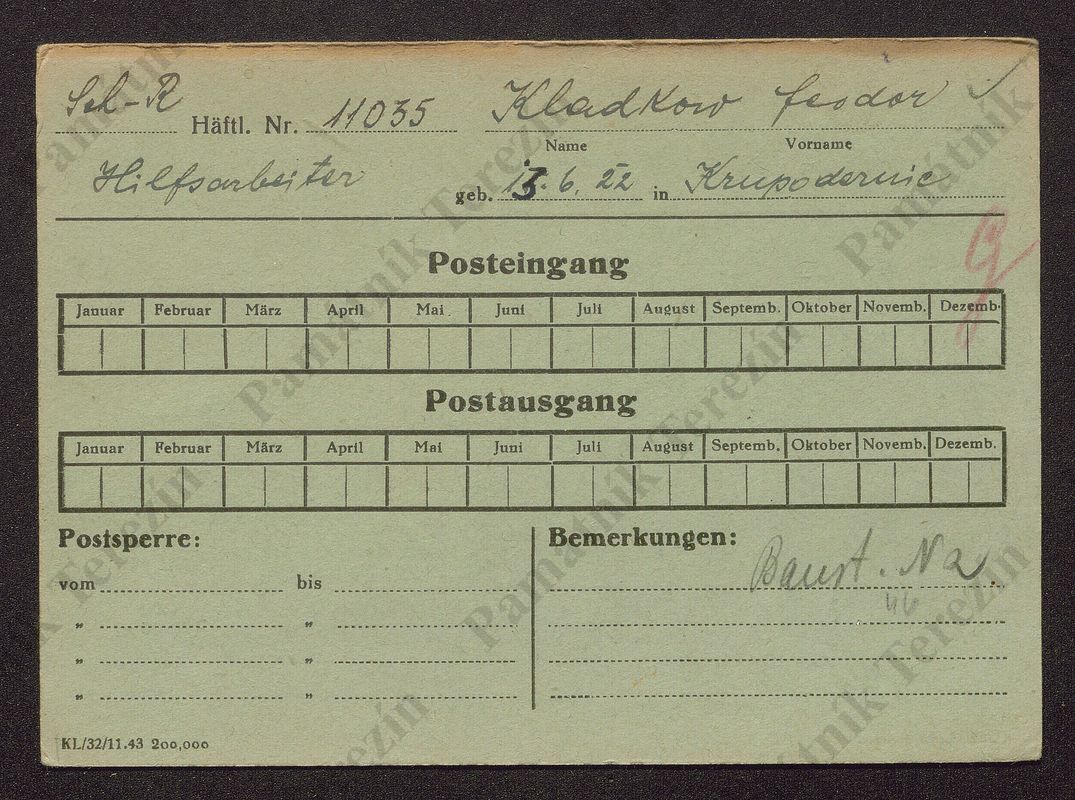 Sch-R Häftl. Nr. 11035 Kladkow Feodor
Name Vorname
Hilfsarbeiter geb. 13. 6. 22 in Krupodernie
Posteingang
Januar Februar März April Mai Juni Juli August Septemb. Oktober Novemb. Dezemb.
Postausgang
Januar Februar März April Mai Juni Juli August Septemb. Oktober Novemb. Dezemb.
Postsperre: Bemerkungen:
Baust. Na
vom bis
„ „
„ „
„ „
KL/32/11.43 200,000
Památník Terezín